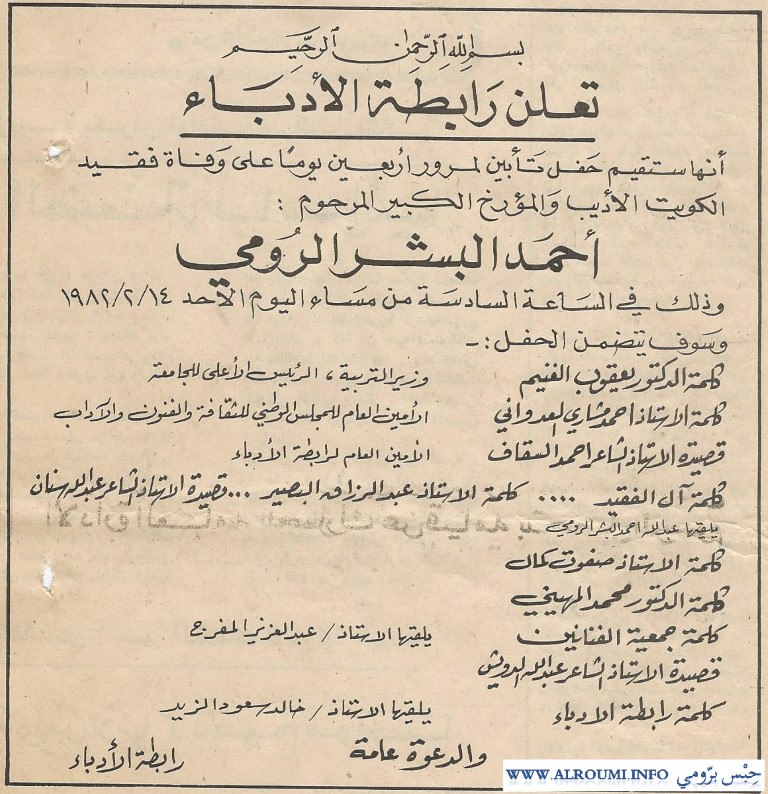 بسم الله الرحمن الرحيم
تعلن رابطة الأدباء
أنها ستقيم حفل تأبين لمرور أربعين يومًا على وفاة فقيد
الكويت الأديب والمؤرخ الكبير المرحوم :
أحمد البشر الرومي
وذلك في الساعة السادسة من مساء اليوم الأحد ١٩٨٢/٢/١٤
وسوف يتضمن الحفل :-
كلمة الدكتور يعقوب الغنيم وزير التربية ، الرئيس الأعلى للجامعة
كلمة الاستاذ احمد مشاري العدواني الأمين العام للمجلس الوطني للثقافة والفنون والآداب
قصيدة الاستاذ الشاعر احمد السقاف الأمين العام لرابطة الأدباء
كلمة آل الفقيد .... كلمة الاستاذ عبد الرزاق البصير ... قصيدة الاستاذ الشاعر عبدالله سنان
يلقيها عبدالله احمد البشر الرومي
كلمة الاستاذ صفوت كمال
كلمة الدكتور محمد المهيني
كلمة جمعية الفنانين يلقيها الاستاذ / عبد العزيز المفرج
قصيدة الاستاذ الشاعر عبدالله الدويش
كلمة رابطة الادباء يلقيها الاستاذ / خالد سعود الزيد
والدعوة عامة
رابطة الأدباء
WWW.ALROUMI.INFO حِبْس برّومي